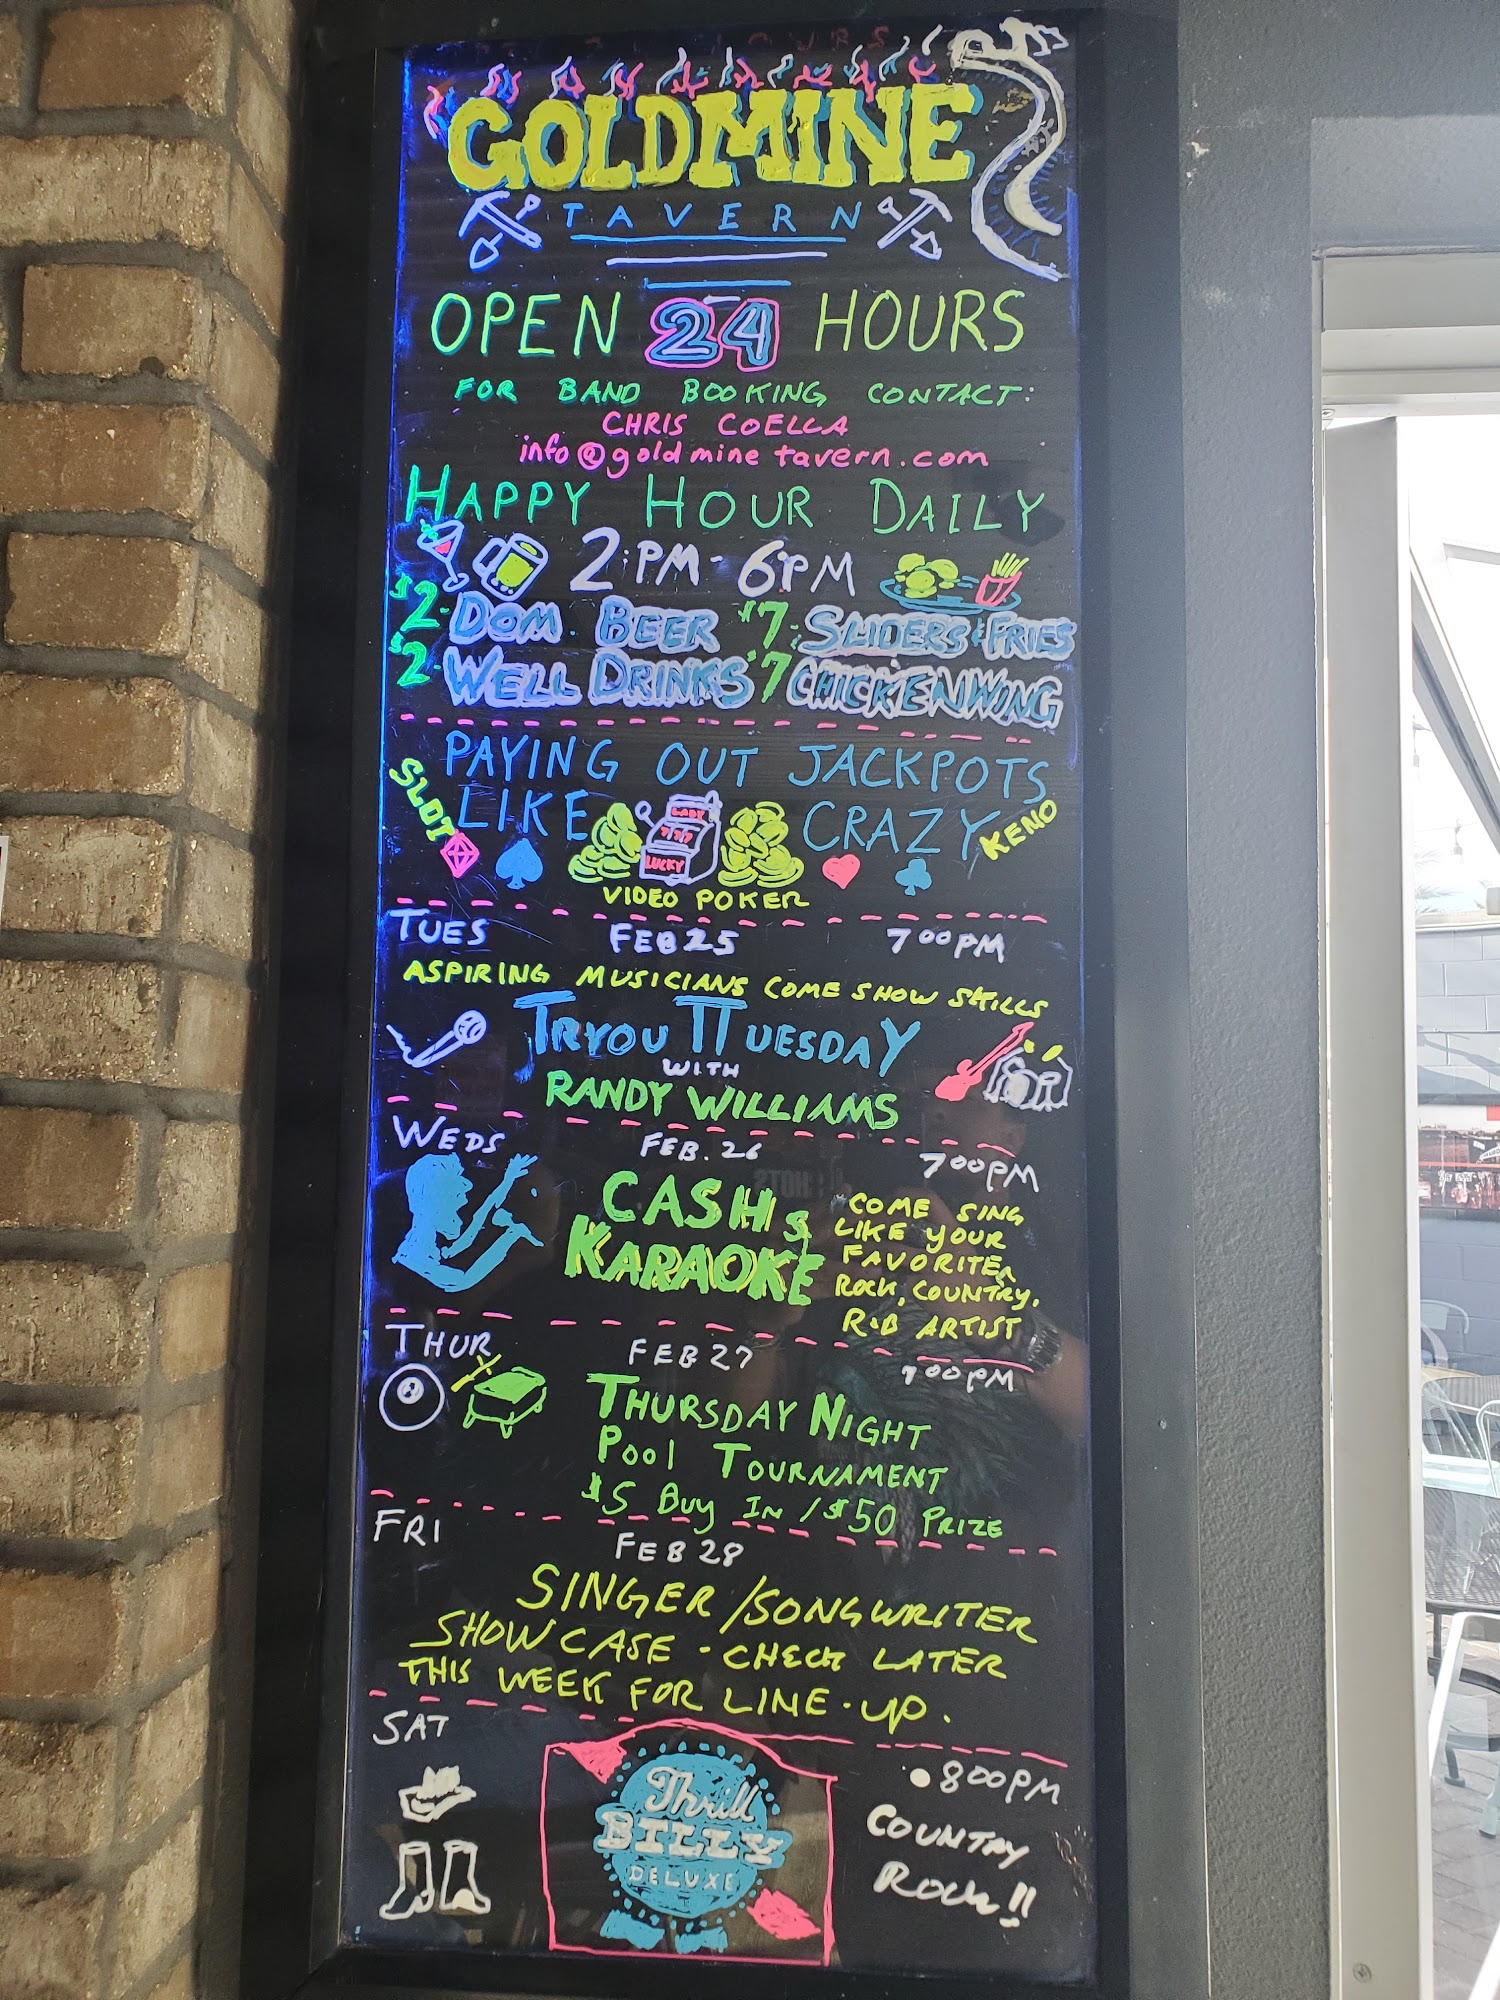 GOLDMINE
TAVERN
OPEN 24 HOURS
FOR BAND BOOKING CONTACT:
CHRIS COELLA
info@goldminetavern.com
HAPPY HOUR DAILY
2:PM-6PM
$2-DOM. BEER $7-SLIDERS & FRIES
$2-WELL DRINKS $7 CHICKEN WING
PAYING OUT JACKPOTS
SLOT LIKE CRAZY KENO
LADY
777
LUCKY
VIDEO POKER
TUES FEB 25 700PM
ASPIRING MUSICIANS COME SHOW SKILLS
TRYOUTTUESDAY
WITH
RANDY WILLIAMS
WEDS FEB. 26 700PM
CASH's
KARAOKE
COME SING
LIKE YOUR
FAVORITE
ROCK, COUNTRY,
R&B ARTIST
THUR FEB 27 700PM
THURSDAY NIGHT
POOl TOURNAMENT
$5 BUY IN / $50 PRIZE
FRI FEB 28
SINGER/SONGWRITER
SHOWCASE - CHECK LATER
THIS WEEK FOR LINE-UP.
SAT 800PM
Thrill
BILLY
DELUXE
COUNTRY
ROCK!!